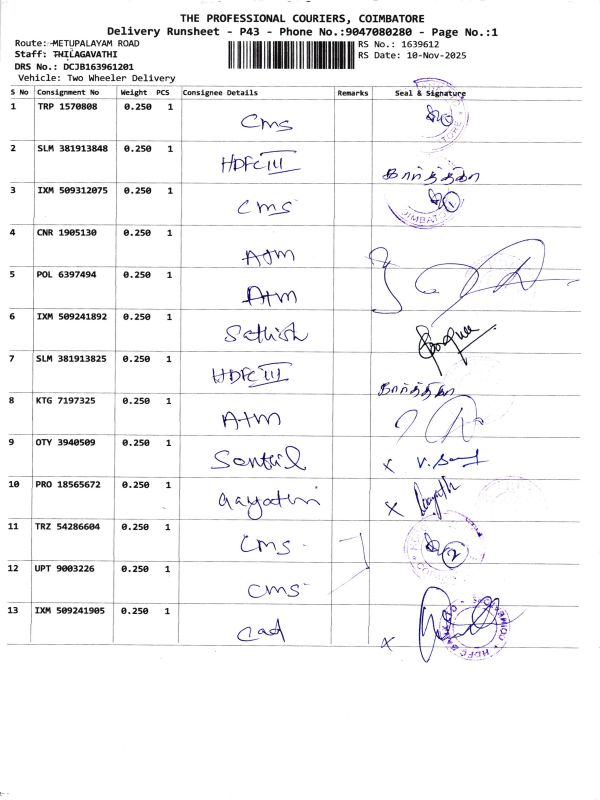 THE PROFESSIONAL COURIERS, COIMBATORE
Delivery Runsheet - P43 - Phone No.:9047080280 - Page No.:1
Route: METUPALAYAM ROAD RS No.: 1639612
Staff: THILAGAVATHI RS Date: 10-Nov-2025
DRS No.: DCJB163961201
Vehicle: Two Wheeler Delivery
S No Consignment No Weight PCS Consignee Details Remarks Seal & Signature
1 TRP 1570808 0.250 1 CMS
2 SLM 381913848 0.250 1 HDFC III கார்த்திகா
3 IXM 509312075 0.250 1 CMS 1
4 CNR 1905130 0.250 1 ATM
5 POL 6397494 0.250 1 ATM
6 IXM 509241892 0.250 1 Sathish
7 SLM 381913825 0.250 1 HDFC III கார்த்திகா
8 KTG 7197325 0.250 1 ATM
9 OTY 3940509 0.250 1 Senthil x
10 PRO 18565672 0.250 1 Gayathri x
11 TRZ 54286604 0.250 1 CMS 2
12 UPT 9003226 0.250 1 CMS
13 IXM 509241905 0.250 1 Cad x